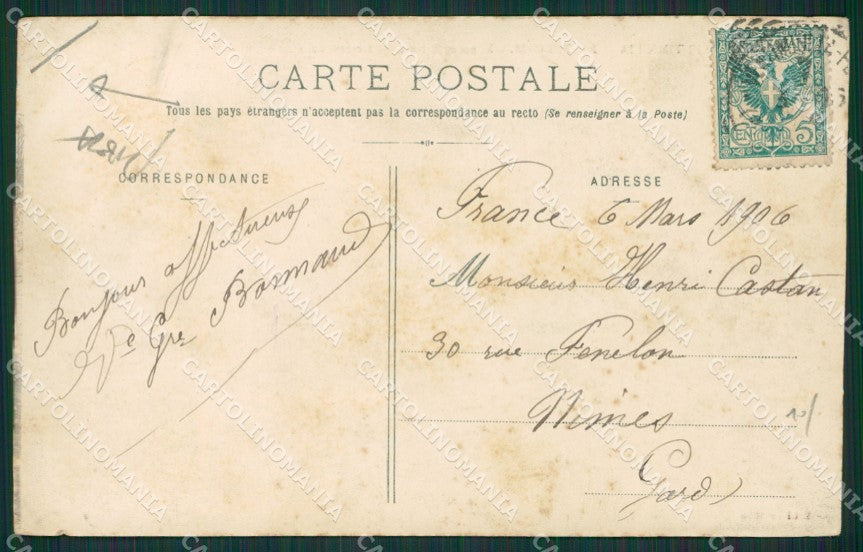 CARTE POSTALE
Tous les pays étrangers n'acceptent pas la correspondance au recto (Se renseigner à la Poste)
CORRESPONDANCE
Bonjour affectueux
Ve Gre Bormand
ADRESSE
France 6 Mars 1906
Monsieur Henri Castan
30 rue Fenelon
Nimes
Gard
5
CARTOLINOMANIA